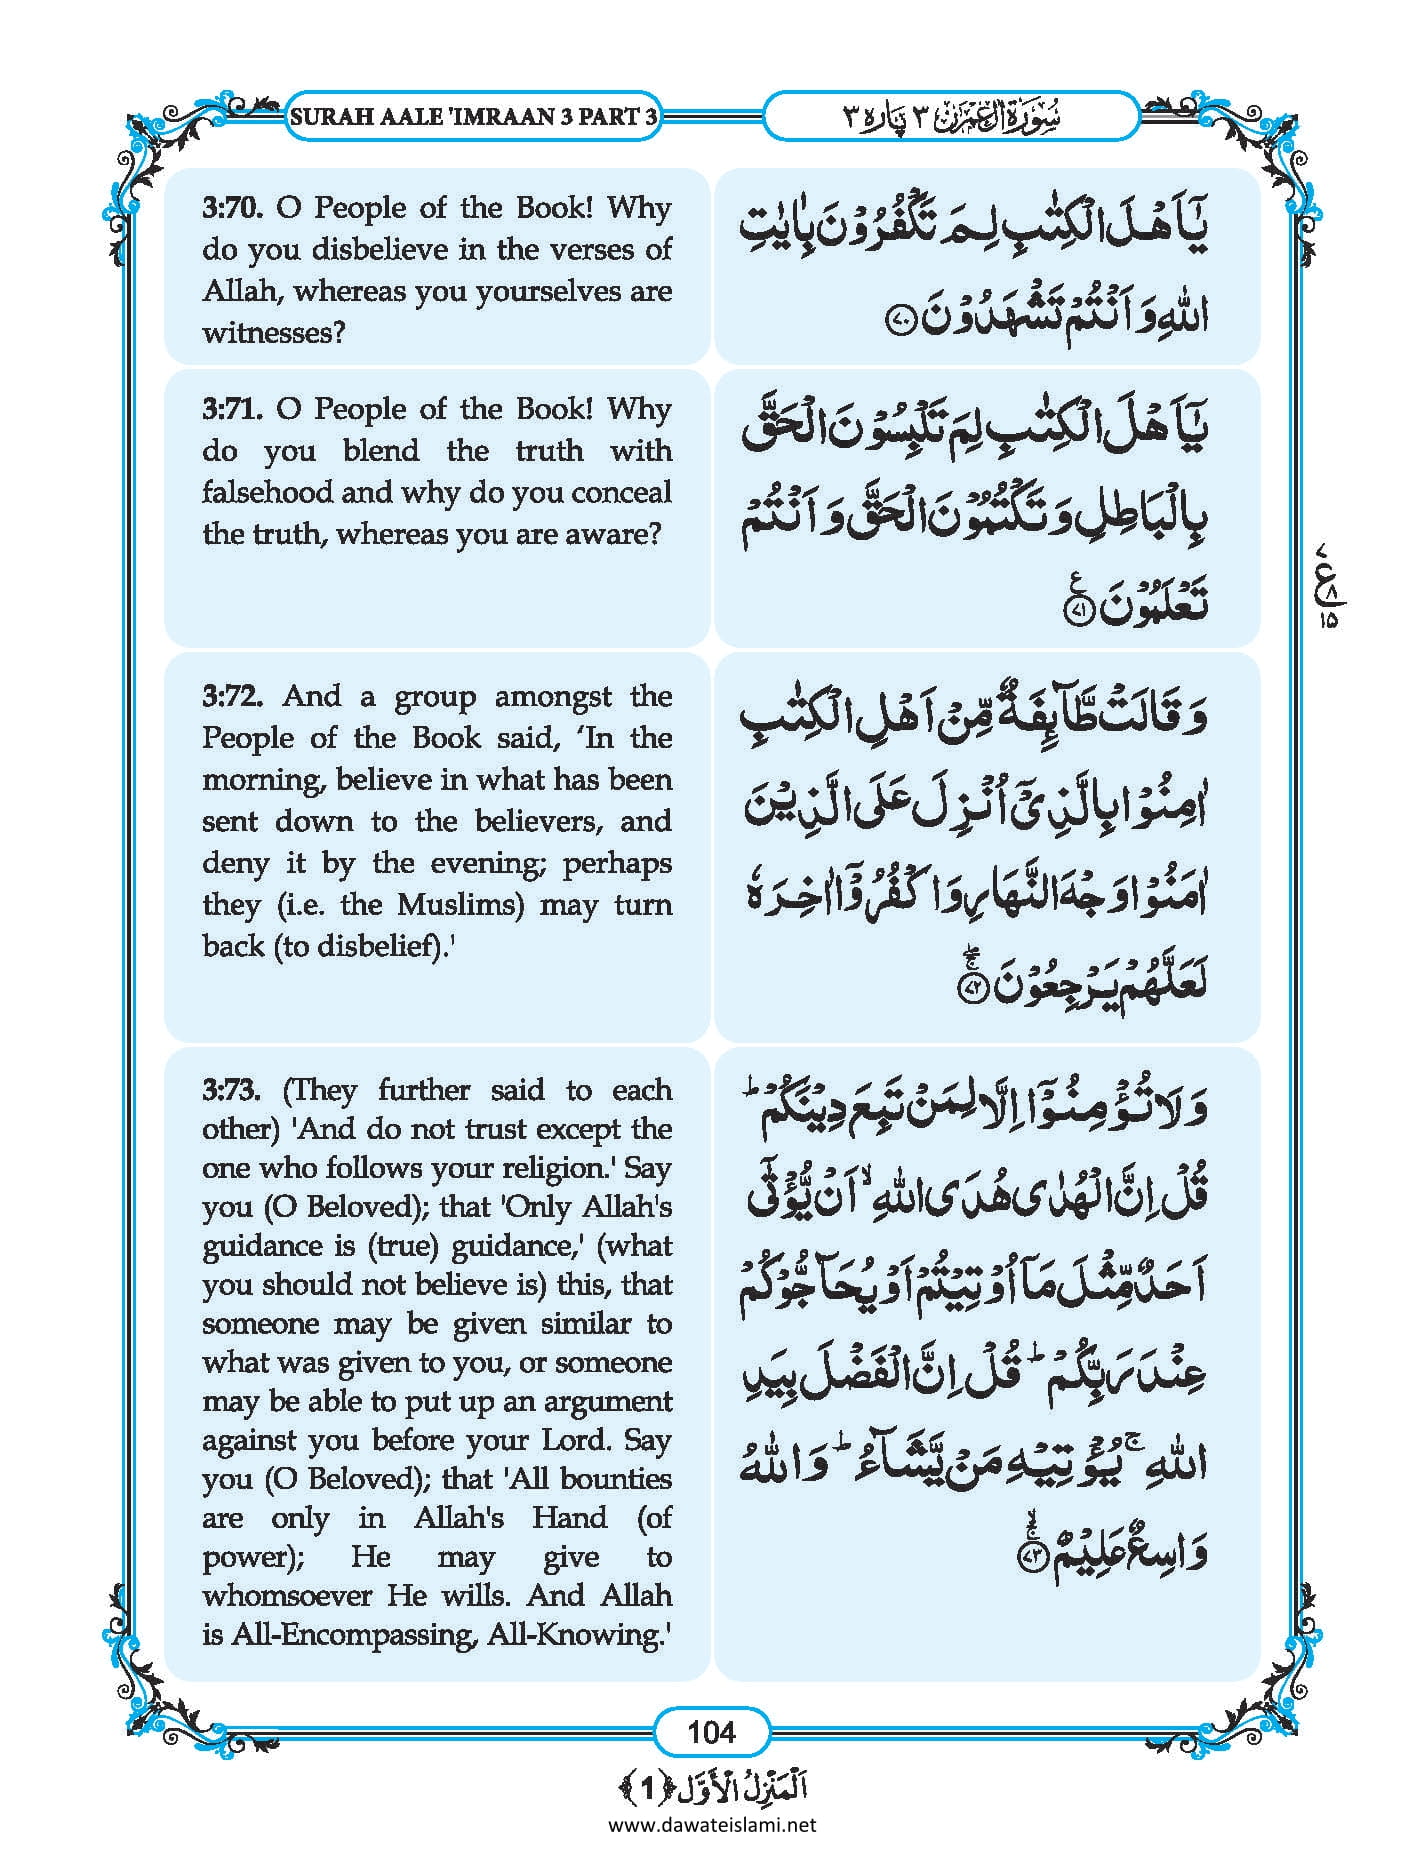 SURAH AALE 'IMRAAN 3 PART 3
سُوْرَةُ اٰلِ عِمْرٰن ٣ پَارہ ٣
3:70. O People of the Book! Why
do you disbelieve in the verses of
Allah, whereas you yourselves are
witnesses?
يٰۤاَهْلَ الْكِتٰبِ لِمَ تَكْفُرُوْنَ بِاٰيٰتِ
اللّٰهِ وَ اَنْتُمْ تَشْهَدُوْنَ ﴿۷۰﴾
3:71. O People of the Book! Why
do you blend the truth with
falsehood and why do you conceal
the truth, whereas you are aware?
يٰۤاَهْلَ الْكِتٰبِ لِمَ تَلْبِسُوْنَ الْحَقَّ
بِالْبَاطِلِ وَ تَكْتُمُوْنَ الْحَقَّ وَ اَنْتُمْ
تَعْلَمُوْنَ ﴿۷۱﴾ ع
۷
ع
۸
۱۵
3:72. And a group amongst the
People of the Book said, ‘In the
morning, believe in what has been
sent down to the believers, and
deny it by the evening; perhaps
they (i.e. the Muslims) may turn
back (to disbelief).'
وَ قَالَتْ طَّآىِٕفَةٌ مِّنْ اَهْلِ الْكِتٰبِ
اٰمِنُوْا بِالَّذِيْۤ اُنْزِلَ عَلَى الَّذِيْنَ
اٰمَنُوْا وَجْهَ النَّهَارِ وَ اكْفُرُوْۤا اٰخِرَهٗ
لَعَلَّهُمْ يَرْجِعُوْنَ ﴿۷۲﴾
3:73. (They further said to each
other) 'And do not trust except the
one who follows your religion.' Say
you (O Beloved); that 'Only Allah's
guidance is (true) guidance,' (what
you should not believe is) this, that
someone may be given similar to
what was given to you, or someone
may be able to put up an argument
against you before your Lord. Say
you (O Beloved); that 'All bounties
are only in Allah's Hand (of
power); He may give to
whomsoever He wills. And Allah
is All-Encompassing, All-Knowing.'
وَ لَا تُؤْمِنُوْۤا اِلَّا لِمَنْ تَبِعَ دِيْنَكُمْ ؕ
قُلْ اِنَّ الْهُدٰى هُدَى اللّٰهِ ۙ اَنْ يُّؤْتٰۤى
اَحَدٌ مِّثْلَ مَاۤ اُوْتِيْتُمْ اَوْ يُحَآجُّوْكُمْ
عِنْدَ رَبِّكُمْ ؕ قُلْ اِنَّ الْفَضْلَ بِيَدِ
اللّٰهِ ۚ يُؤْتِيْهِ مَنْ يَّشَآءُ ؕ وَ اللّٰهُ
وَاسِعٌ عَلِيْمٌ ﴿۷۳﴾
104
اَلْمَنْزِلُ الْاَوَّل ﴿1﴾
www.dawateislami.net